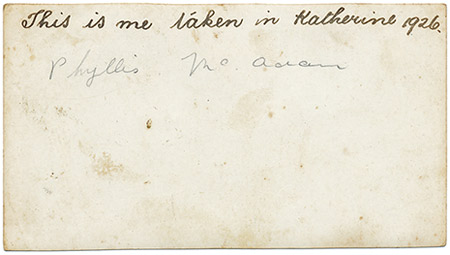 This is me taken in Katherine 1926.
Phyllis Mc. Adam